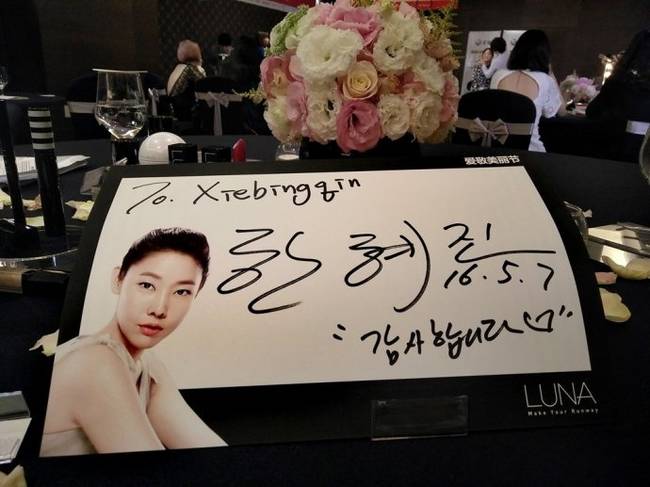 爱敬美丽节
To. Xiebingqin
한혜진
16.5.7
"감사합니다♡"
LUNA
Make Your Runway